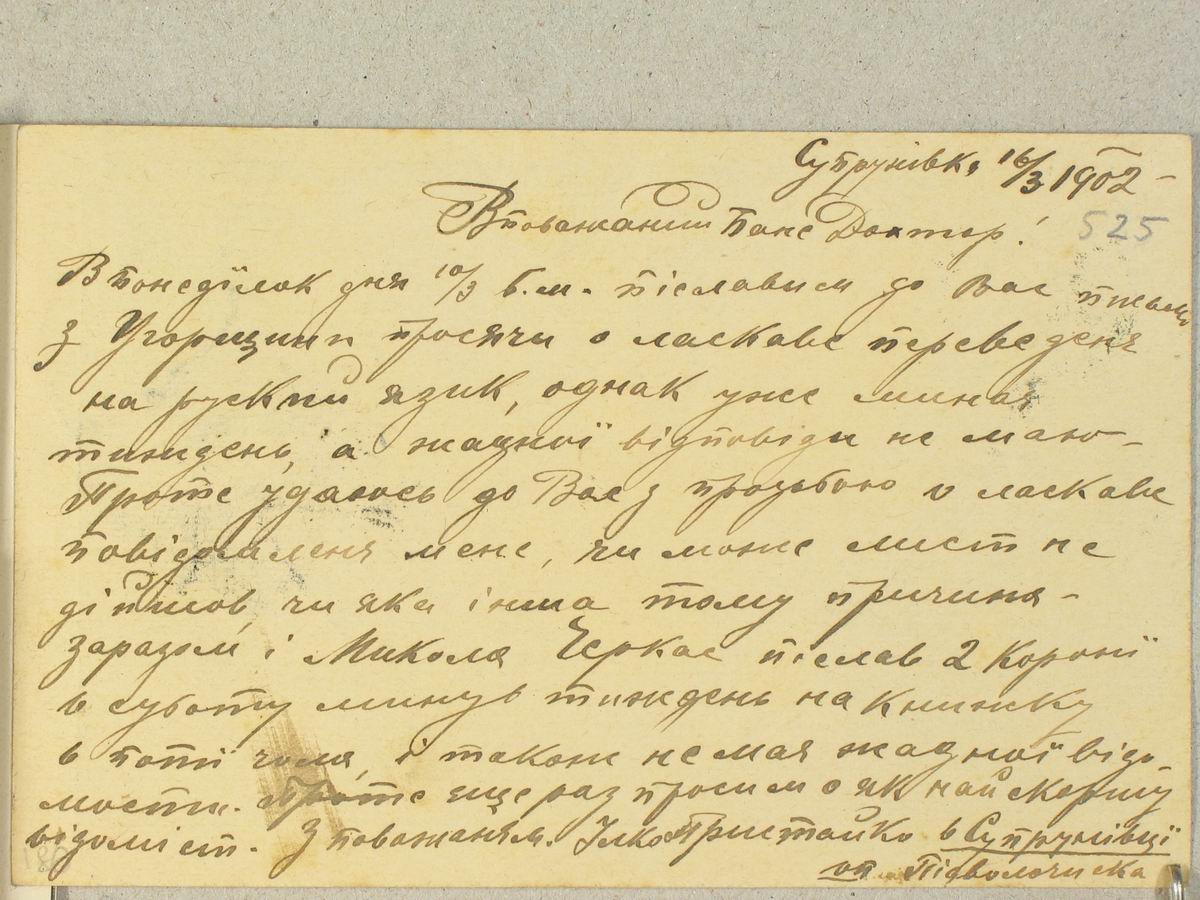 Супрунівка 16/3 1902 -
525
Вповажаний Пане Доктор!
В понеділок дня 10/3 б.м. піславим до Вас письмо
з Угорщини просячи о ласкаве переведеня
на руский язик, однак уже миная
тиждень, а жадної відповіди не маю -
Проте удаюсь до Вас з прозьбою о ласкаве
повідомленя мене, чи може лист не
дійшов, чи яка інша тому причина -
заразом і Микола Черкас післав 2 Корони
в суботу минув тиждень на книжку
в поті чола, і також не мая жадної відо-
мости. Проте еще раз просим о як найскоршу
відомість. З поважаням. Ілко Пристайко в Супрунівці
оп. Підволочиска